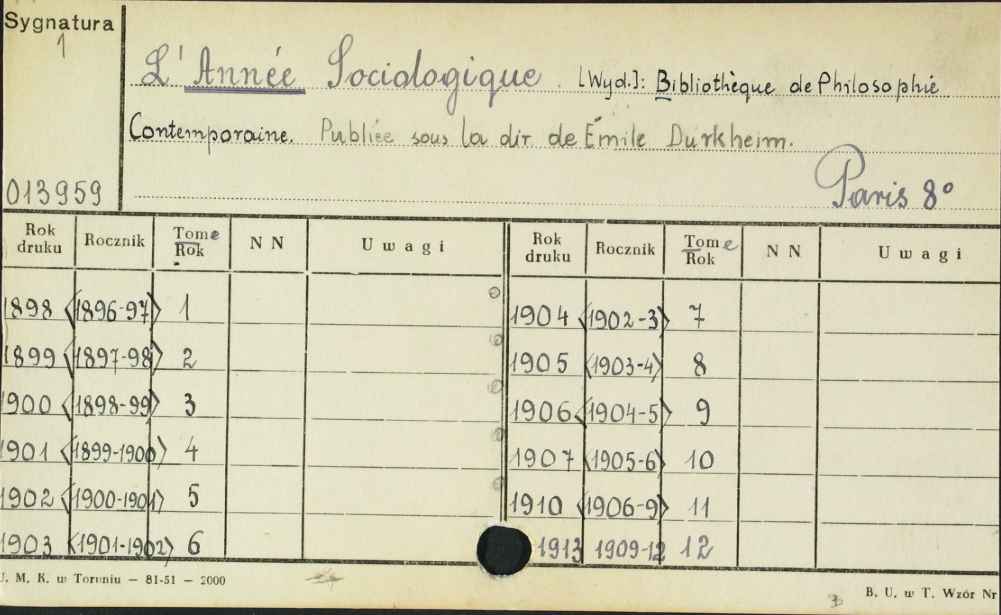 Sygnatura
1
L'Année Sociologique. [Wyd.]: Bibliothèque de Philosophie
Contemporaine. Publiée sous la dir. de Émile Durkheim.
013959
Paris 8°
Rok druku Rocznik Tome Rok N N Uwagi Rok druku Rocznik Tome Rok N N Uwagi
1898 <1896-97> 1 1904 <1902-3> 7
1899 <1897-98> 2 1905 <1903-4> 8
1900 <1898-99> 3 1906 <1904-5> 9
1901 <1899-1900> 4 1907 <1905-6> 10
1902 <1900-1901> 5 1910 <1906-9> 11
1903 <1901-1902> 6 1913 1909-12 12
U. M. K. w Toruniu — 81-51 — 2000
B. U. w T. Wzór Nr